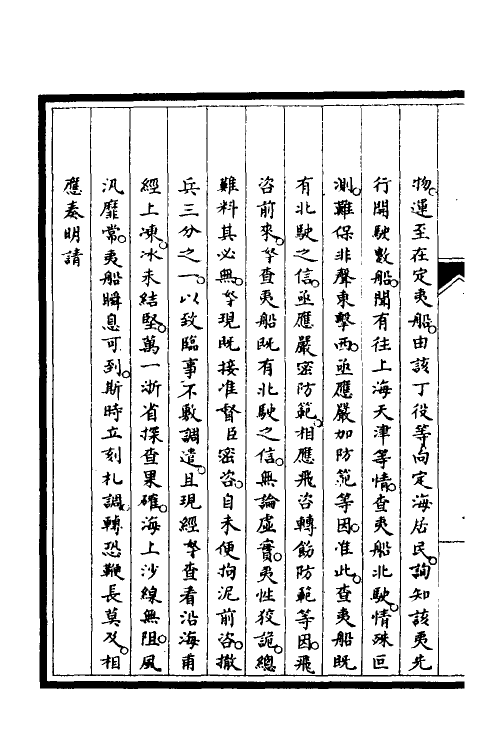 物運至在定夷船由該丁役等向定海居民詢知該夷先
行開駛數船聞有往上海天津等情查夷船北駛情殊叵
測難保非聲東擊西亟應嚴加防範等因准此查夷船既
有北駛之信亟應嚴密防範相應飛咨轉飭防範等因飛
咨前來孥查夷船既有北駛之信無論虛實夷性狡詭總
難料其必無孥現既接准督臣密咨自未便拘泥前咨撤
兵三分之一以致臨事不敷調遣且現經孥查看沿海甫
經上凍冰未結堅萬一浙省探查果確海上沙線無阻風
汛靡常夷船瞬息可到斯時立刻札調轉恐鞭長莫及相
應奏明請